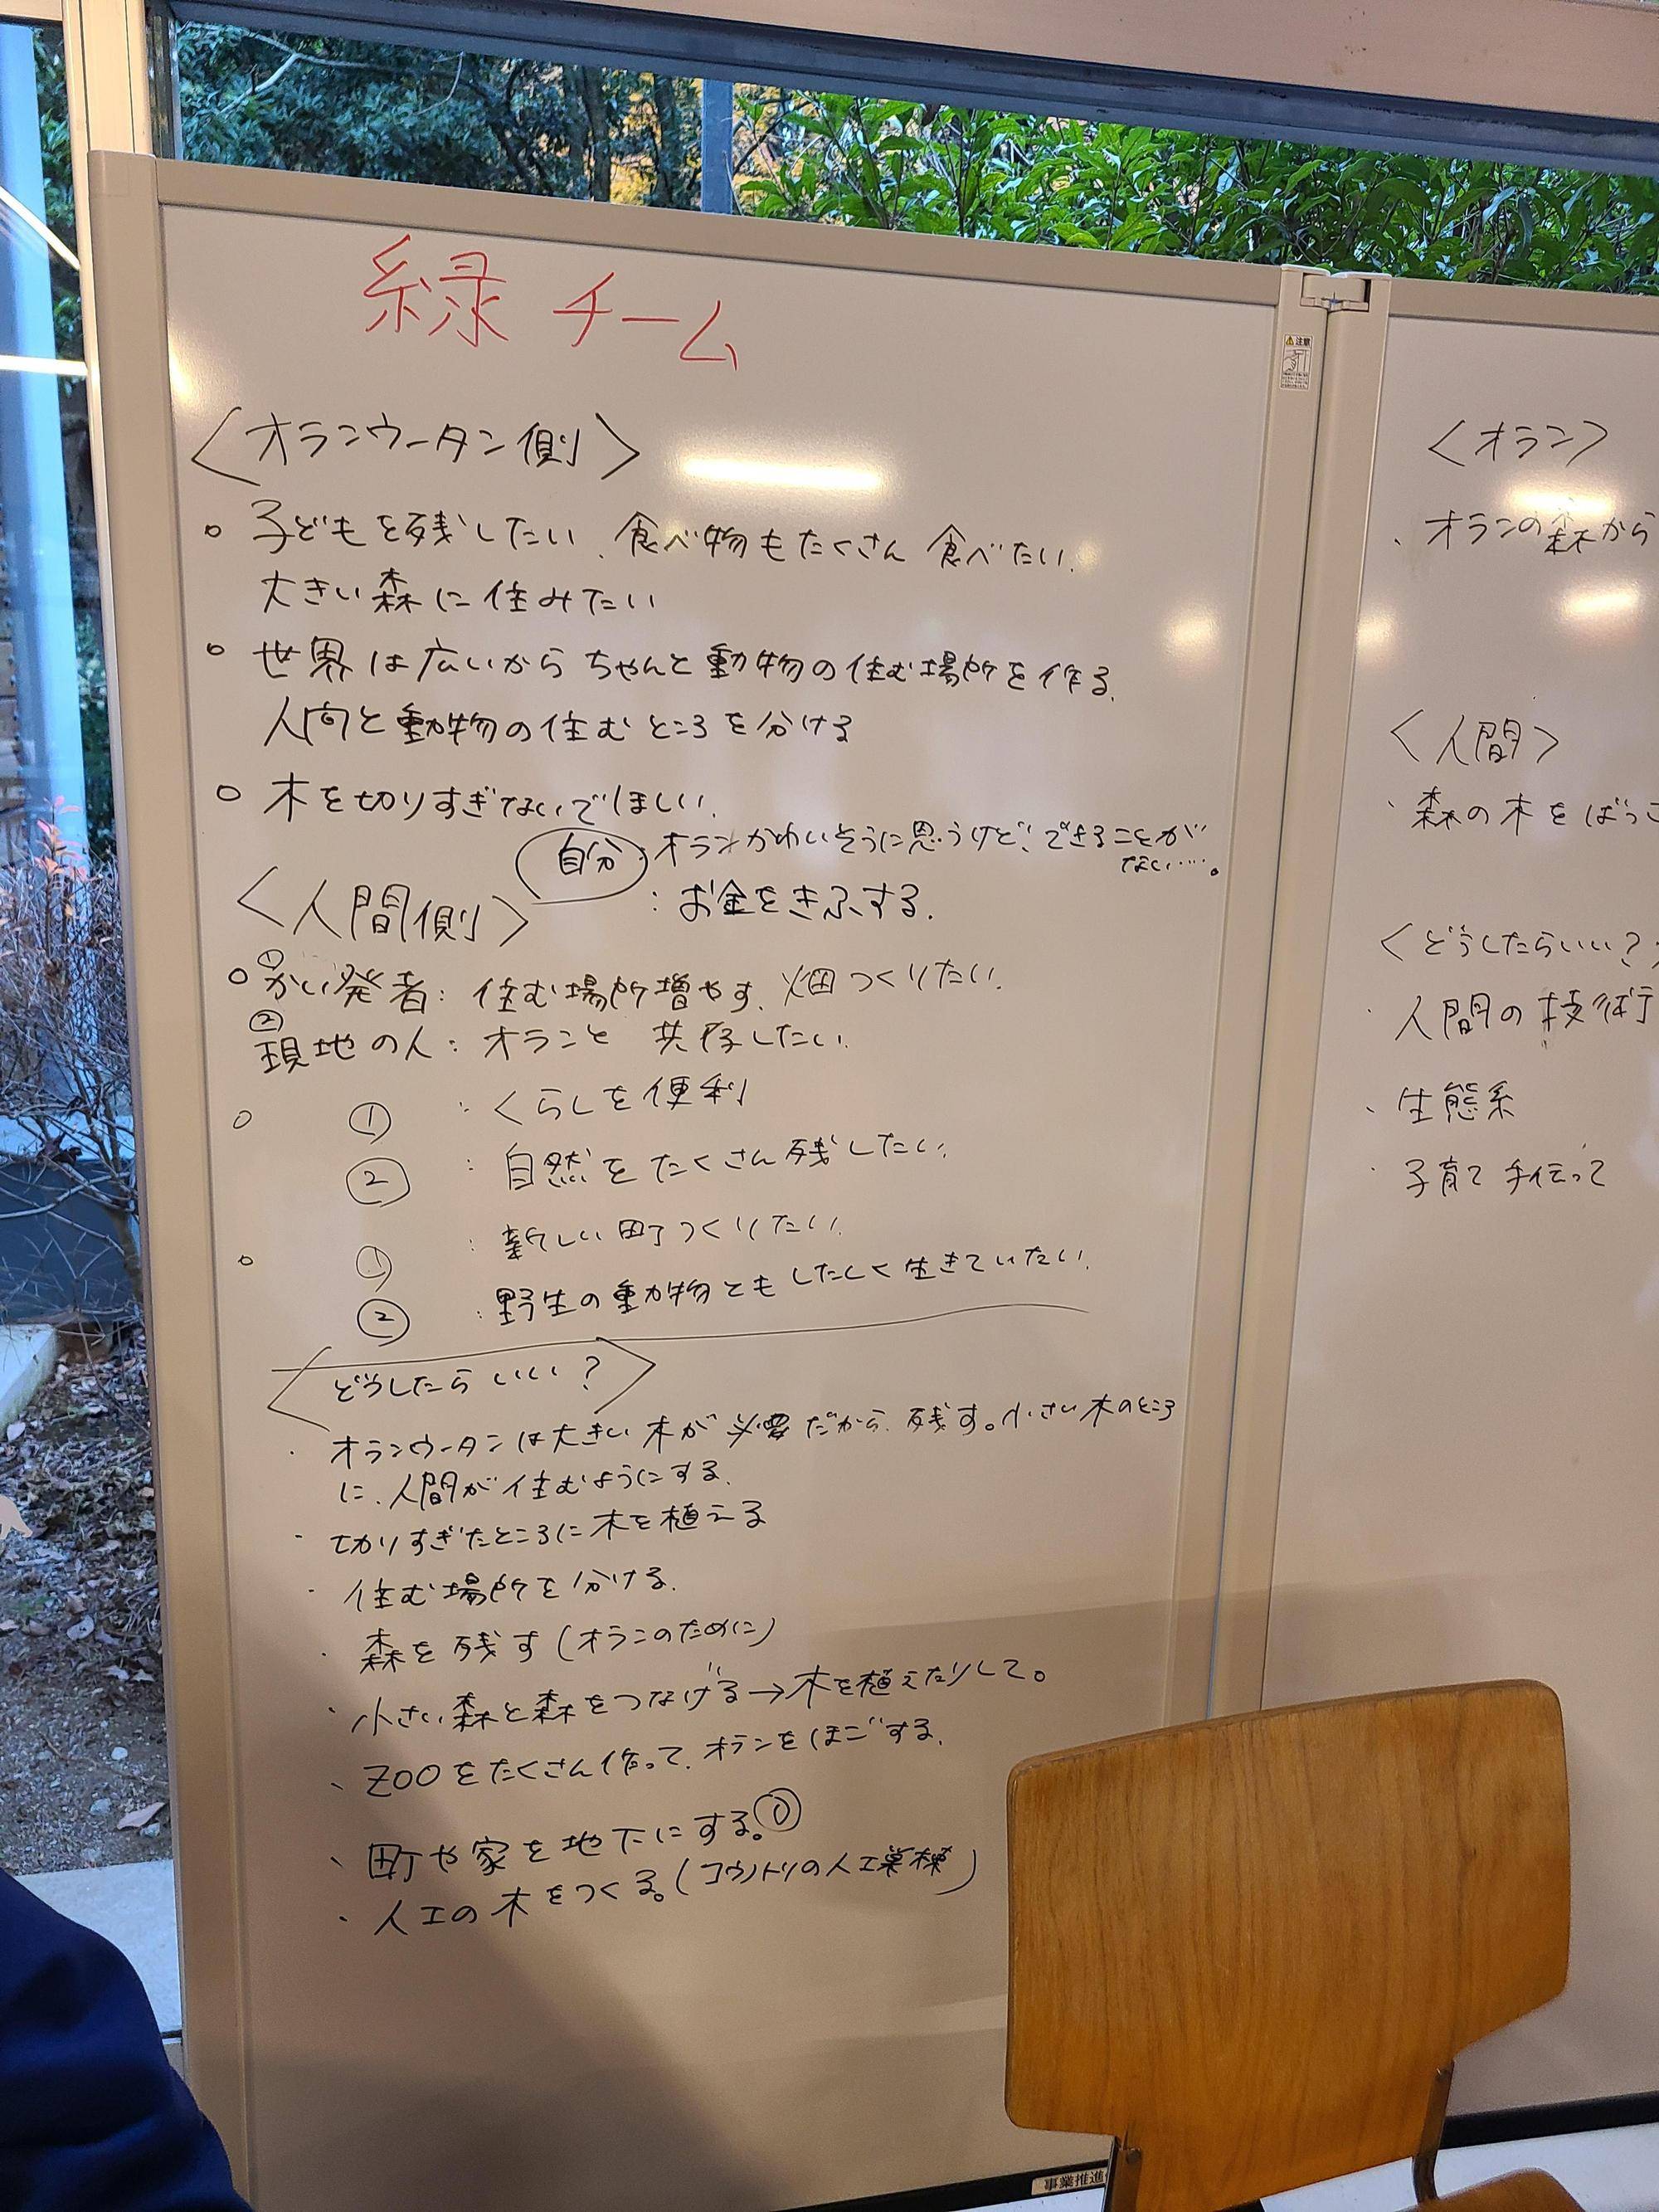 緑チーム
<オランウータン側>
○ 子どもを残したい、食べ物もたくさん食べたい、
大きい森に住みたい
○ 世界は広いからちゃんと動物の住む場所を作る、
人間と動物の住むところを分ける
○ 木を切りすぎないでほしい、
自分:オランかわいそうに思うけど、できることが
ない…。
:お金をきふする、
<人間側>
○ ①かい発者:住む場所増やす、畑つくりたい、
②現地の人:オランと共存したい、
○ ①:くらしを便利
②:自然をたくさん残したい、
○ ①:新しい町つくりたい、
②:野生の動物ともしたしく生きていたい、
<どうしたらいい?>
・オランウータンは大きい木が必要だから、残す。小さい木のところ
に、人間が住むようにする、
・切りすぎたところに木を植える
・住む場所を分ける、
・森を残す(オランのために)
・小さい森と森をつなげる→木を植えたりして。
・ZOOをたくさん作って、オランをほごする、
・町や家を地下にする。
・人工の木をつくる。(コウノトリの人工巣棟)
<オラン>
・オランの森から
<人間>
・森の木をばっさ
<どうしたらいい?
・人間の技術
・生態系
・子育て手伝って
注意
事業推進